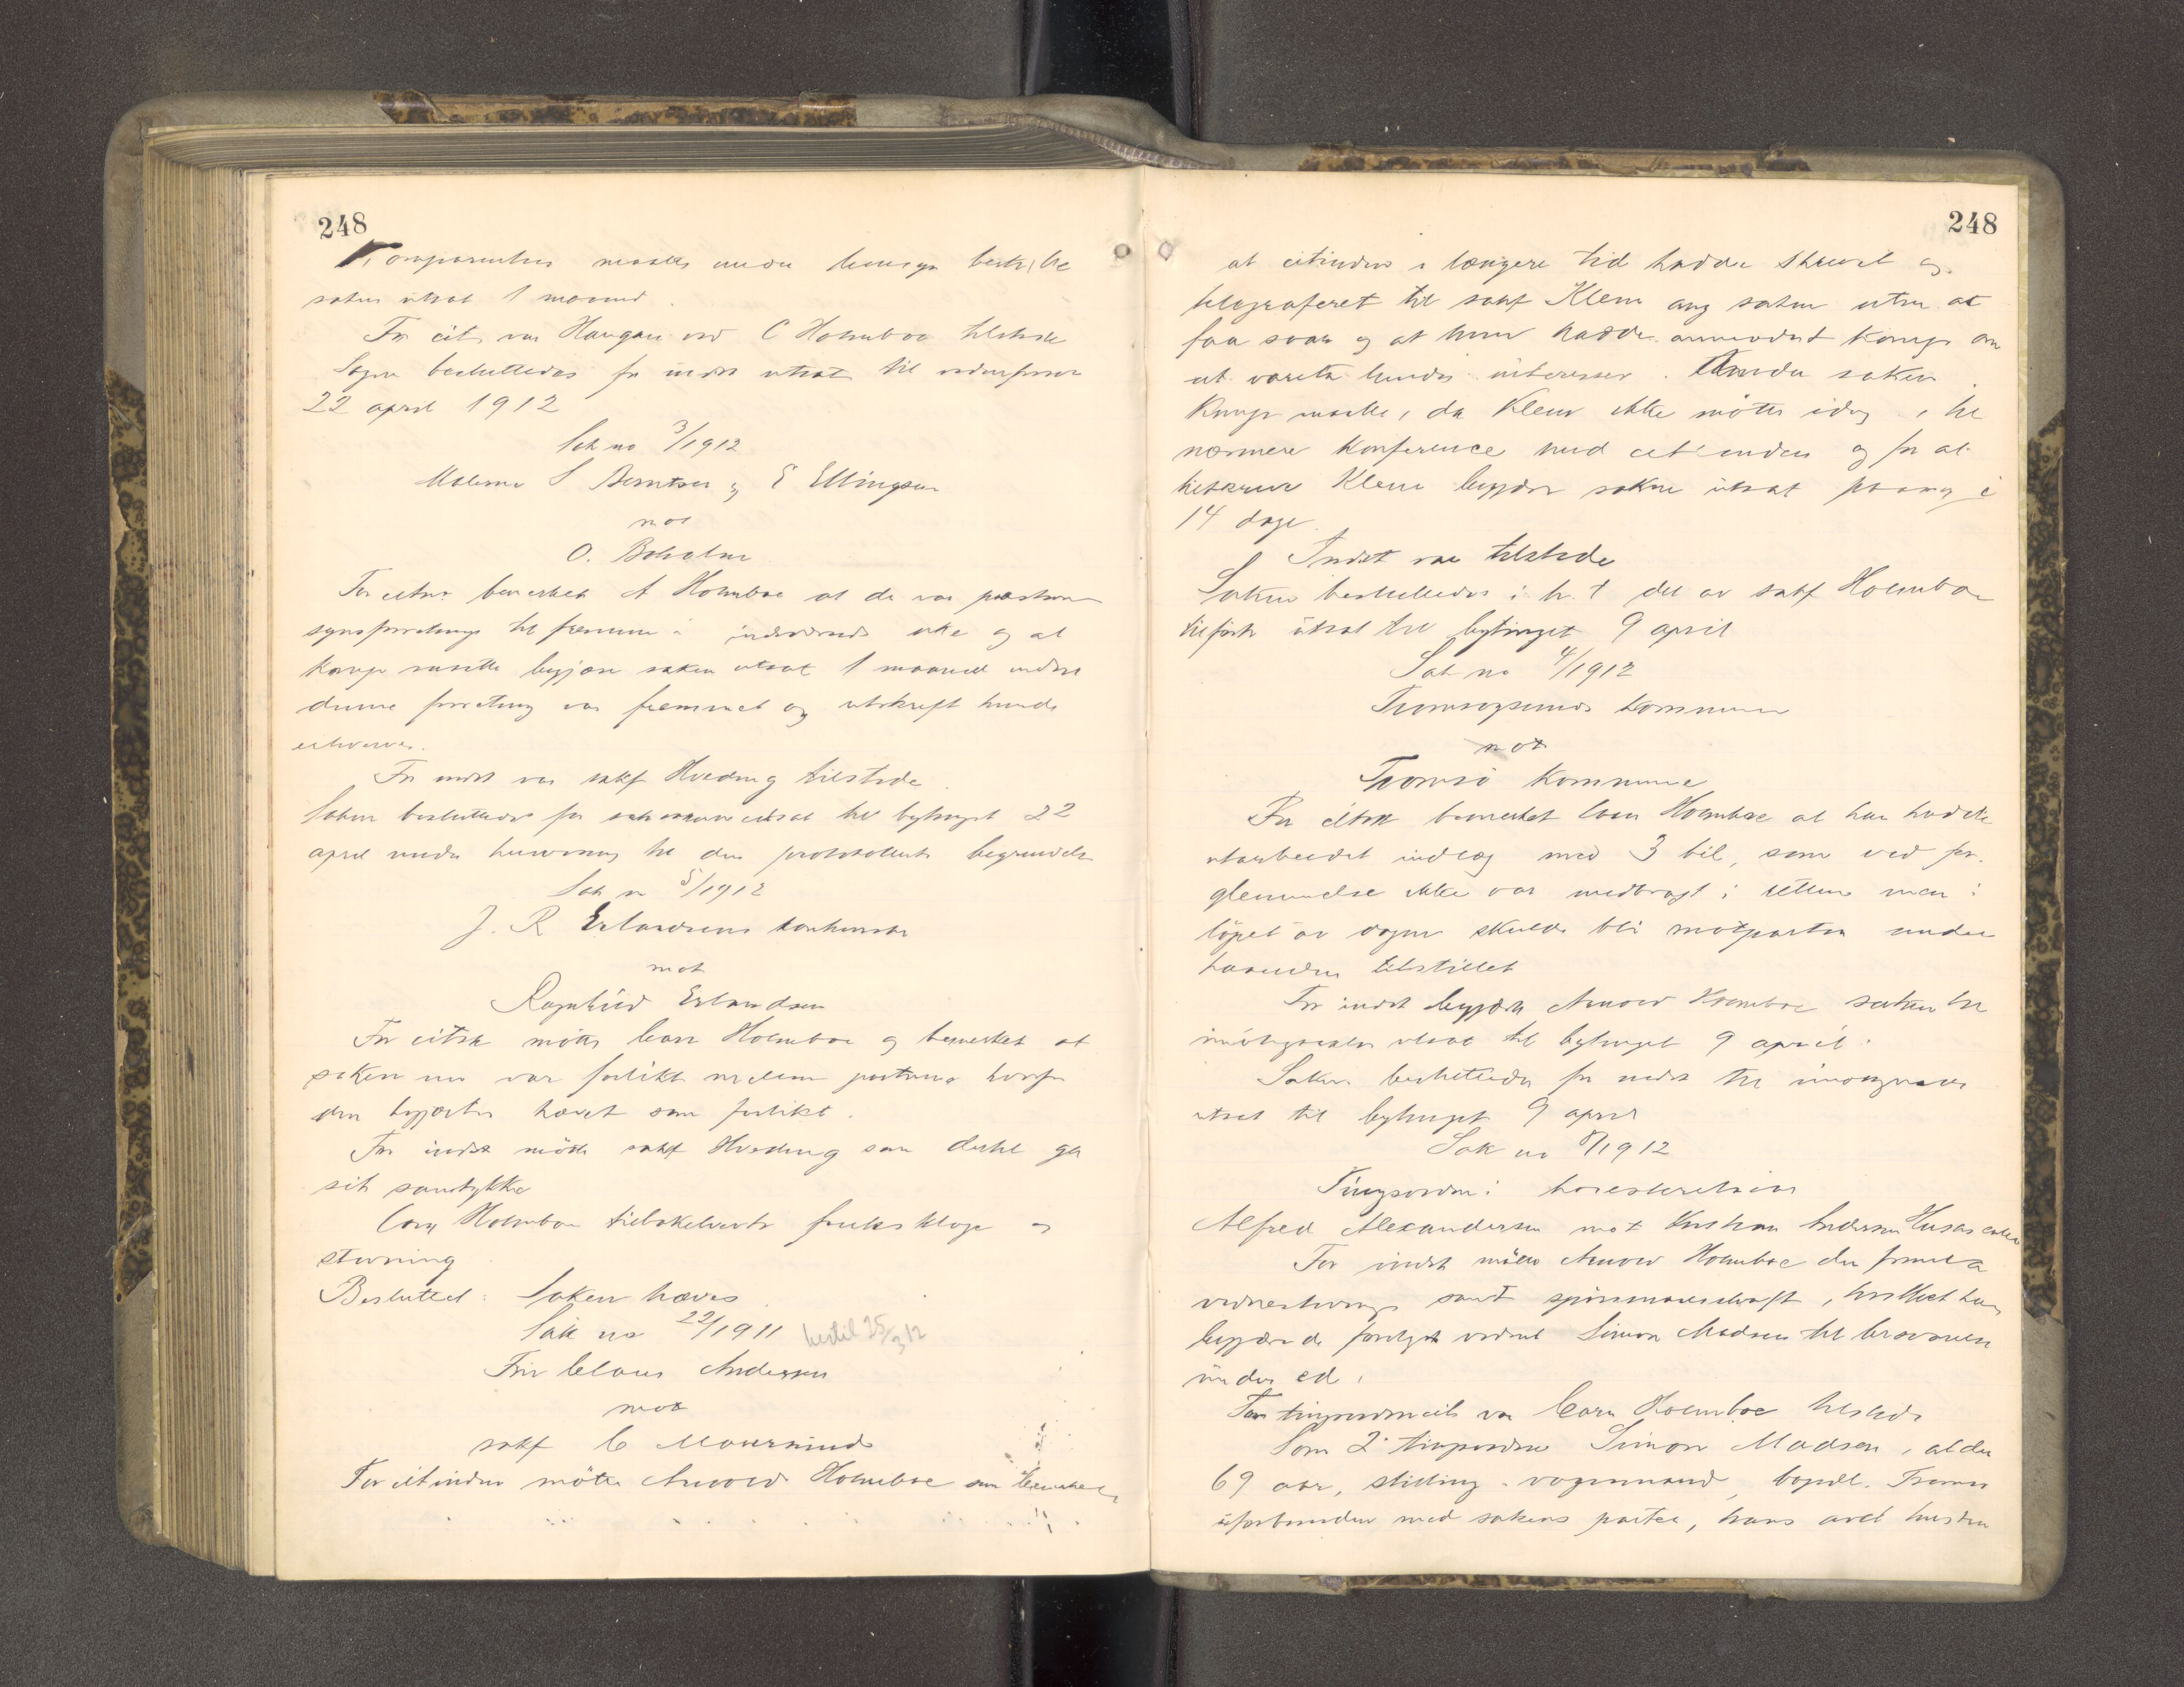 248
Komparenten maatte under hensyn
saken utsat 1 maaned.
For cit. var Haugan ved C Holmboe tilstede
Sagen besluttedes for indst utsat til
22 april 1912
Sak no 3/1912
Malerne S Berntsen og E Ellingsen
mot
O. Boholm
For citne bemerket A Holmboe at de var
synsforretning til fremme i indeværende uke og at
komp maatte begjære saken utsat 1 maaned indtil
denne forretning var fremmet og utskrift kunde
erhverves.
For indst var sakf Hveding tilstede
Saken besluttedes for utsat til bytinget 22
april under henvisning til den protokollerte begrundelse
Sak no 5/1912
J. R Erlandsens konkursbo
mot
Ragnhild Erlandsen
For citne møtte Carn Holmboe og bemerket at
saken nu var forlikt mellem partene hvorfor
den begjærtes hævet som forlikt.
For indst møtte sakf Hveding som dertil ga
sit samtykke
Carn Holmboe tilbakeleverte forliksklage og
stevning
Besluttet: Saken hæves
Sak no 22/1911 bestil 25/3 12
Fru Claus Andersen
mot
sakf C Mourmund
For citinden møtte Arnold Holmboe som bemerket
248
at citinden i længere tid hadde skrevet og
telegraferet til sakf Klem ang saken uten at
faa svar og at hun hadde anmodet komp om
at vareta hendes interesser. saken
Komp maatte, da Klem ikke møtte idag, til
nærmere konference med citinden og for at
tilskrive Klem begjære saken utsat paany i
14 dage.
Indst var tilstede
Saken besluttedes i h. t det av sakf Holmboe
tilførte utsat til bytinget 9 april
Sak no 4/1912
Tromsøysunds kommune
mot
Tromsø kommune
For citne bemerket Carn Holmboe at han hadde
utarbeidet indlæg med 3 bil, som ved for-
glemmelse ikke var medbragt i retten men i
løpet av dagen skulde bli motparten under
haanden tilstillet
For indst begjærte Arnold Holmboe saken til
imøtegaaelse utsat til bytinget 9 april.
Saken besluttedes for indst til imøtegaaelse
utsat til bytinget 9 april
Sak no 8/1912
Tingsvidne i havesteretssak
Alfred Alexandersen mot Kristian Andersen Husaas
For indst møtte Arnold Holmboe der fremla
vidnestevning samt spørsmaalsskrift, hvilket han
begjærede forelagt vidnet Simon Madsen til besvarelse
under ed.
For tingsvidnecit var Carn Holmboe tilstede
Som 2' tingsvidne Simon Madsen, alder
69 aar, stilling vognmand, bopæl. Tromsø
uforbunden med sakens parter, hans avd hustru